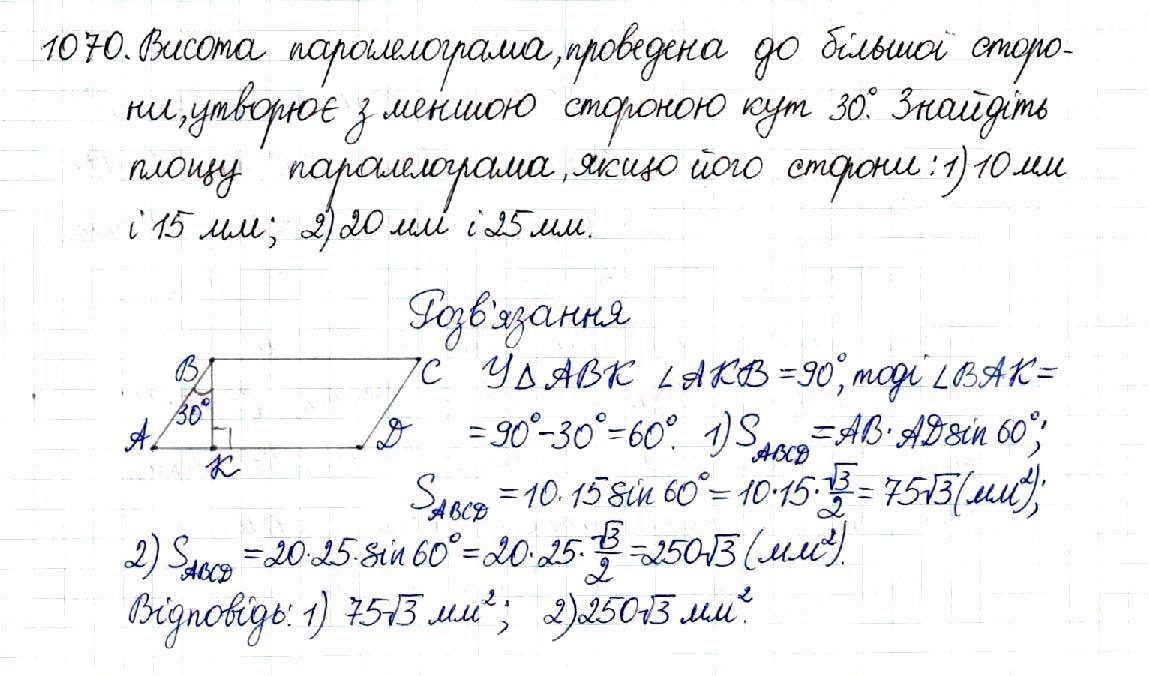 1070. Висота паралелограма, проведена до більшої сторо-
ни, утворює з меншою стороною кут 30°. Знайдіть
площу паралелограма, якщо його сторони: 1) 10 мм
і 15 мм; 2) 20 мм і 25 мм.
Розв'язання
B C У △ ABK ∠AKB = 90°, тоді ∠BAK =
30°
A K D = 90° - 30° = 60°. 1) S_ABCD = AB · AD sin 60°;
S_ABCD = 10 · 15 sin 60° = 10 · 15 · √3/2 = 75√3 (мм²);
2) S_ABCD = 20 · 25 · sin 60° = 20 · 25 · √3/2 = 250√3 (мм²).
Відповідь: 1) 75√3 мм²; 2) 250√3 мм².